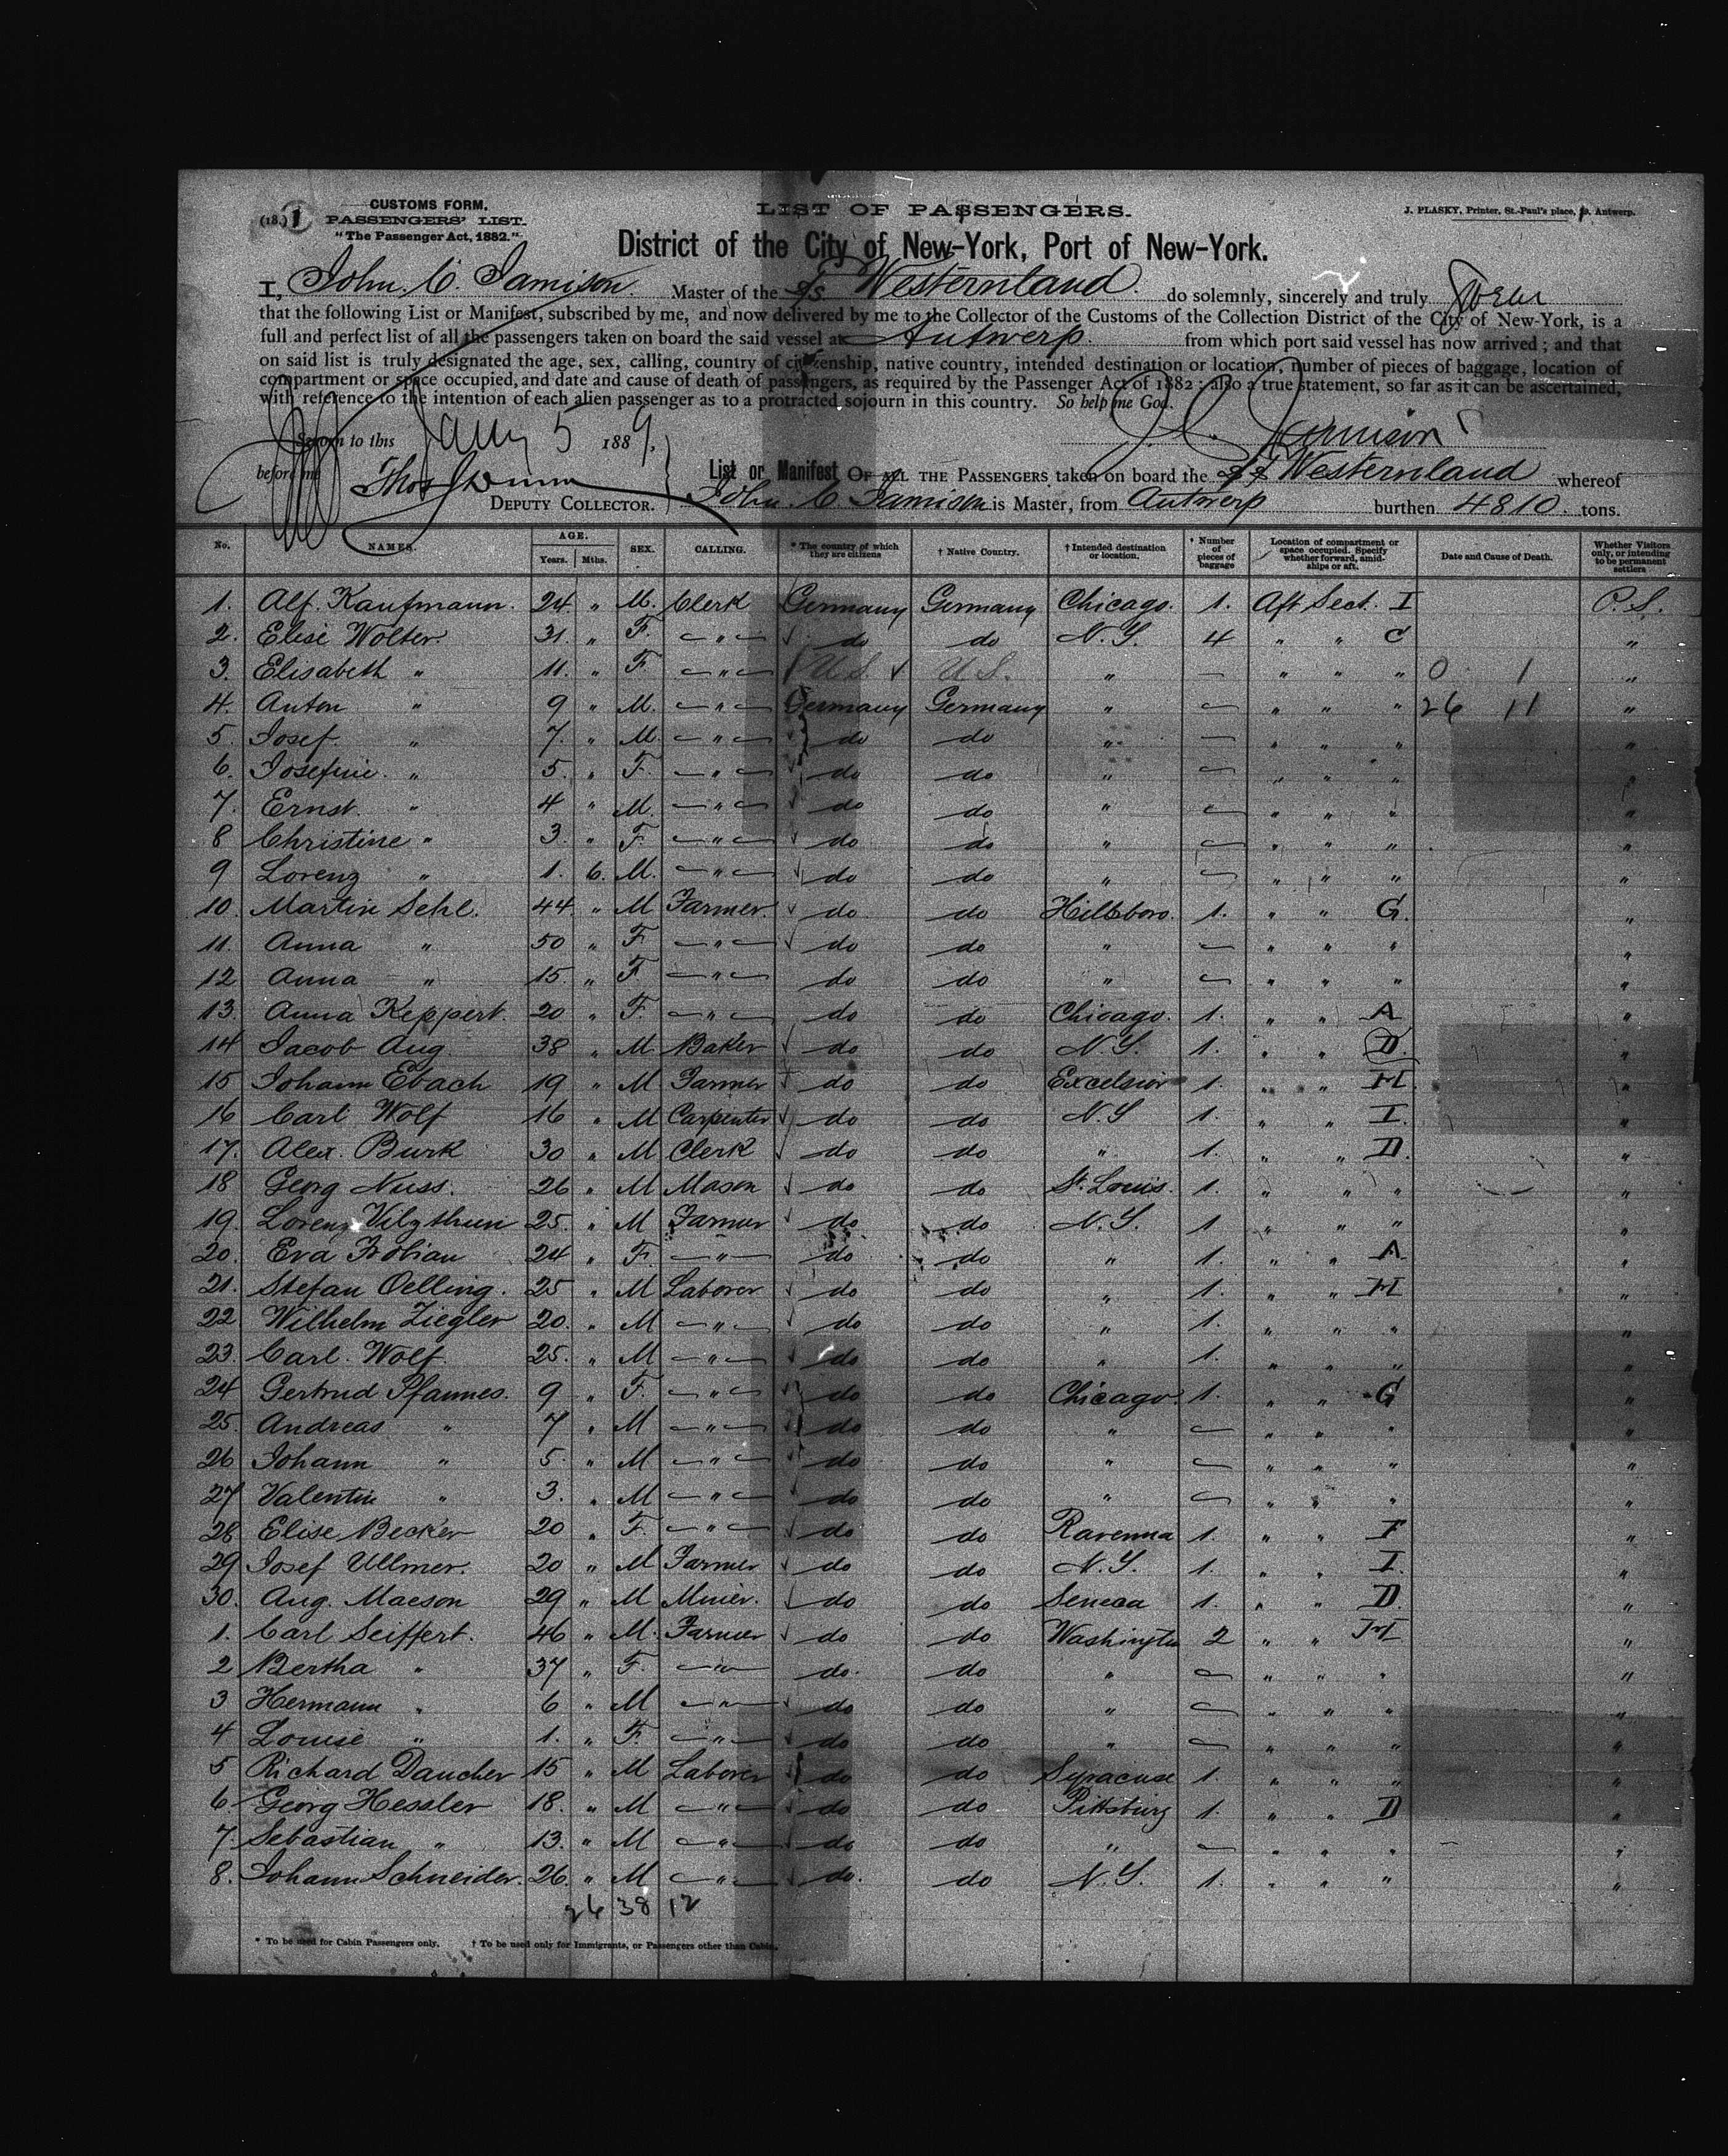 (18.) 1 CUSTOMS FORM. LIST OF PASSENGERS. J. PLASKY, Printer, St.-Paul's place, Antwerp.
PASSENGERS' LIST.
"The Passenger Act, 1882."
District of the City of New-York, Port of New-York.
I, John. C. Jamison. Master of the SS Westernland. do solemnly, sincerely and truly swear
that the following List or Manifest, subscribed by me, and now delivered by me to the Collector of the Customs of the Collection District of the City of New-York, is a
full and perfect list of all the passengers taken on board the said vessel at Antwerp. from which port said vessel has now arrived; and that
on said list is truly designated the age, sex, calling, country of citizenship, native country, intended destination or location, number of pieces of baggage, location of
compartment or space occupied, and date and cause of death of passengers, as required by the Passenger Act of 1882; also a true statement, so far as it can be ascertained,
with reference to the intention of each alien passenger as to a protracted sojourn in this country. So help me God.
Sworn to this Jany 5 1889. J. C. Jamison
before me Thos Dunn List or Manifest OF ALL THE PASSENGERS taken on board the SS Westernland whereof
DEPUTY COLLECTOR. John. C. Jamison is Master, from Antwerp burthen 4810. tons.
No. NAMES. AGE. Years. Mths. SEX. CALLING. * The country of which they are citizens † Native Country. † Intended destination or location. † Number of pieces of baggage Location of compartment or space occupied. Specify whether forward, amidships or aft. Date and Cause of Death. Whether Visitors only, or intending to be permanent settlers
1. Alf. Kaufmann. 24. " M. Clerk Germany Germany Chicago. 1. Aft Sect. I P.S.
2. Elise Wolter. 31. " F. — " — do do N.Y. 4 " " C "
3. Elisabeth " 11. " F. — " — U.S. U.S. " — " " " 0 1 "
4. Anton " 9 " M. — " — Germany Germany " — " " " 26 11 "
5. Josef. " 7. " M. — " — do do " — " " " "
6. Josefine. " 5. " F. — " — do do " — " " " "
7. Ernst. " 4 " M. — " — do do " — " " " "
8 Christine " 3. " F. — " — do do " — " " " "
9 Lorenz " 1. 6. M. — " — do do " — " " " "
10. Martin Sehl. 44. " M Farmer. do do Hillsboro. 1. " " G. "
11. Anna " 50 " F — " — do do " — " " " "
12 Anna " 15. " F — " — do do " — " " " "
13. Anna Keppert. 20 " F. — " — do do Chicago. 1. " " A "
14 Jacob Aug. 38 " M Baker do do N.Y. 1. " " D. "
15 Johann Ebach 19 " M Farmer do do Excelsior 1. " " H. "
16 Carl Wolf 16 " M Carpenter do do N.Y 1. " " I. "
17. Alex. Burk 30 " M Clerk do do " 1. " " D. "
18 Georg Nuss. 26 " M Mason do do St. Louis. 1. " " " "
19. Lorenz Vilzthum 25. " M Farmer do do N.Y. 1 " " " "
20. Eva Frobian 24 " F. — " — do do " 1. " " A "
21. Stefan Oelling. 25 " M Laborer do do " 1. " " H "
22. Wilhelm Ziegler 20. " M — " — do do " 1. " " " "
23. Carl. Wolf 25. " M — " — do do " 1. " " " "
24 Gertrud Pfannes. 9 " F. — " — do do Chicago. 1. " " G "
25 Andreas " 7 " M — " — do do " — " " " "
26 Johann " 5. " M — " — do do " — " " " "
27 Valentin " 3. " M — " — do do " — " " " "
28 Elise Becker 20 " F. — " — do do Ravenna 1. " " F "
29 Josef Ullmer. 20 " M Farmer do do N.Y. 1. " " I. "
30. Aug. Maeson 29 " M Minier. do do Seneca 1. " " D. "
1. Carl Seiffert. 46 " M. Farmer do do Washington 2 " " H "
2 Bertha " 37 " F. — " — do. do " — " " " "
3 Hermann " 6 " M — " — do do " — " " " "
4 Louise " 1. " F. — " — do do " — " " " "
5 Richard Daucher 15 " M Laborer do do Syracuse 1. " " " "
6 Georg Hessler 18. " M — " — do do Pittsburg 1. " " D "
7. Sebastian " 13. " M — " — do do " — " " " "
8. Johann Schneider. 26. " M — " — do. do N.Y. 1. " " " "
26 38 12
* To be used for Cabin Passengers only. † To be used only for Immigrants, or Passengers other than Cabin.